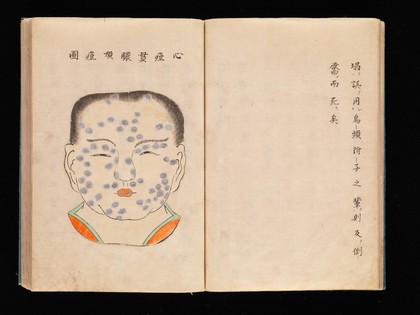 塌誤用烏頭附子之輩則及倒
靨而死矣
心痘貫膿痘圖